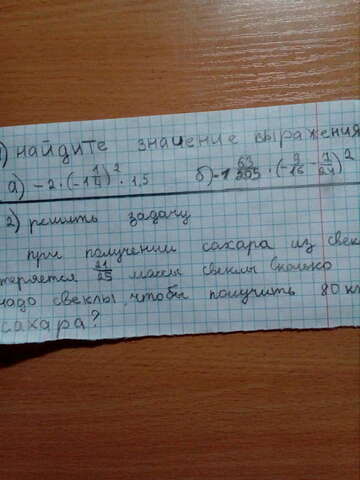 1) найдите значение выражения
а) -2·(-1 1/4)²·1,5 б) -1 ·(-9/16 - 7/24)²
2) решить задачу
при получении сахара из свек
теряется 21/25 массы свеклы сколько
надо свеклы, чтобы получить 80 кг
сахара?